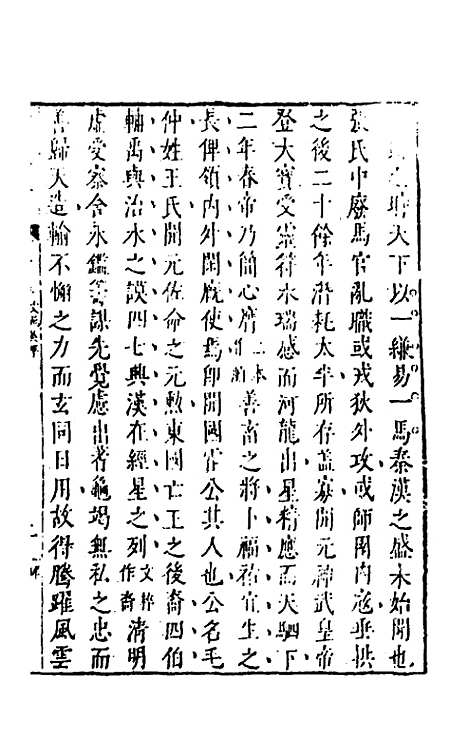 之時天下以一縑易一馬秦漢之盛未始聞也
張氏中廢馬官亂職或戎狄外攻或師圉內寇垂拱
之後二十餘年潛耗太半所存蓋寡開元神武皇帝
登大寶受靈符水瑞感而河龍出星精應而天駟下
二年春帝乃簡心膺善畜之將卜福祐宜生之
長俾領內外閑廐使焉即開國霍公其人也公名毛
仲姓王氏開元佐命之元勲東國亡王之後裔四伯
輔禹興治水之謨四七興漢在經星之列文粹作裔清明
虛受寮舍永鑑等謀先覺慮出蓍龜竭無私之忠而
善歸天造輸不懈之力而玄同日用故得騰躍風雲